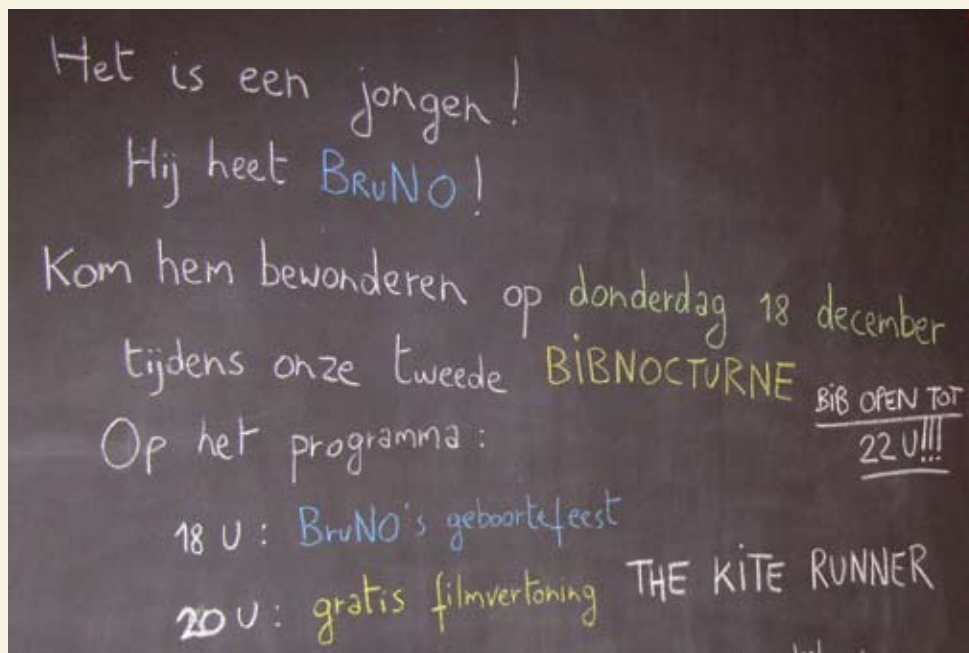 Het is een jongen!
Hij heet BRUNO!
Kom hem bewonderen op donderdag 18 december
tijdens onze tweede BiBNOCTURNE
BiB OPEN TOT
22 U!!!
Op het programma:
18 U: BruNO's geboortefeest
20 U: gratis filmvertoning THE KiTE RUNNER